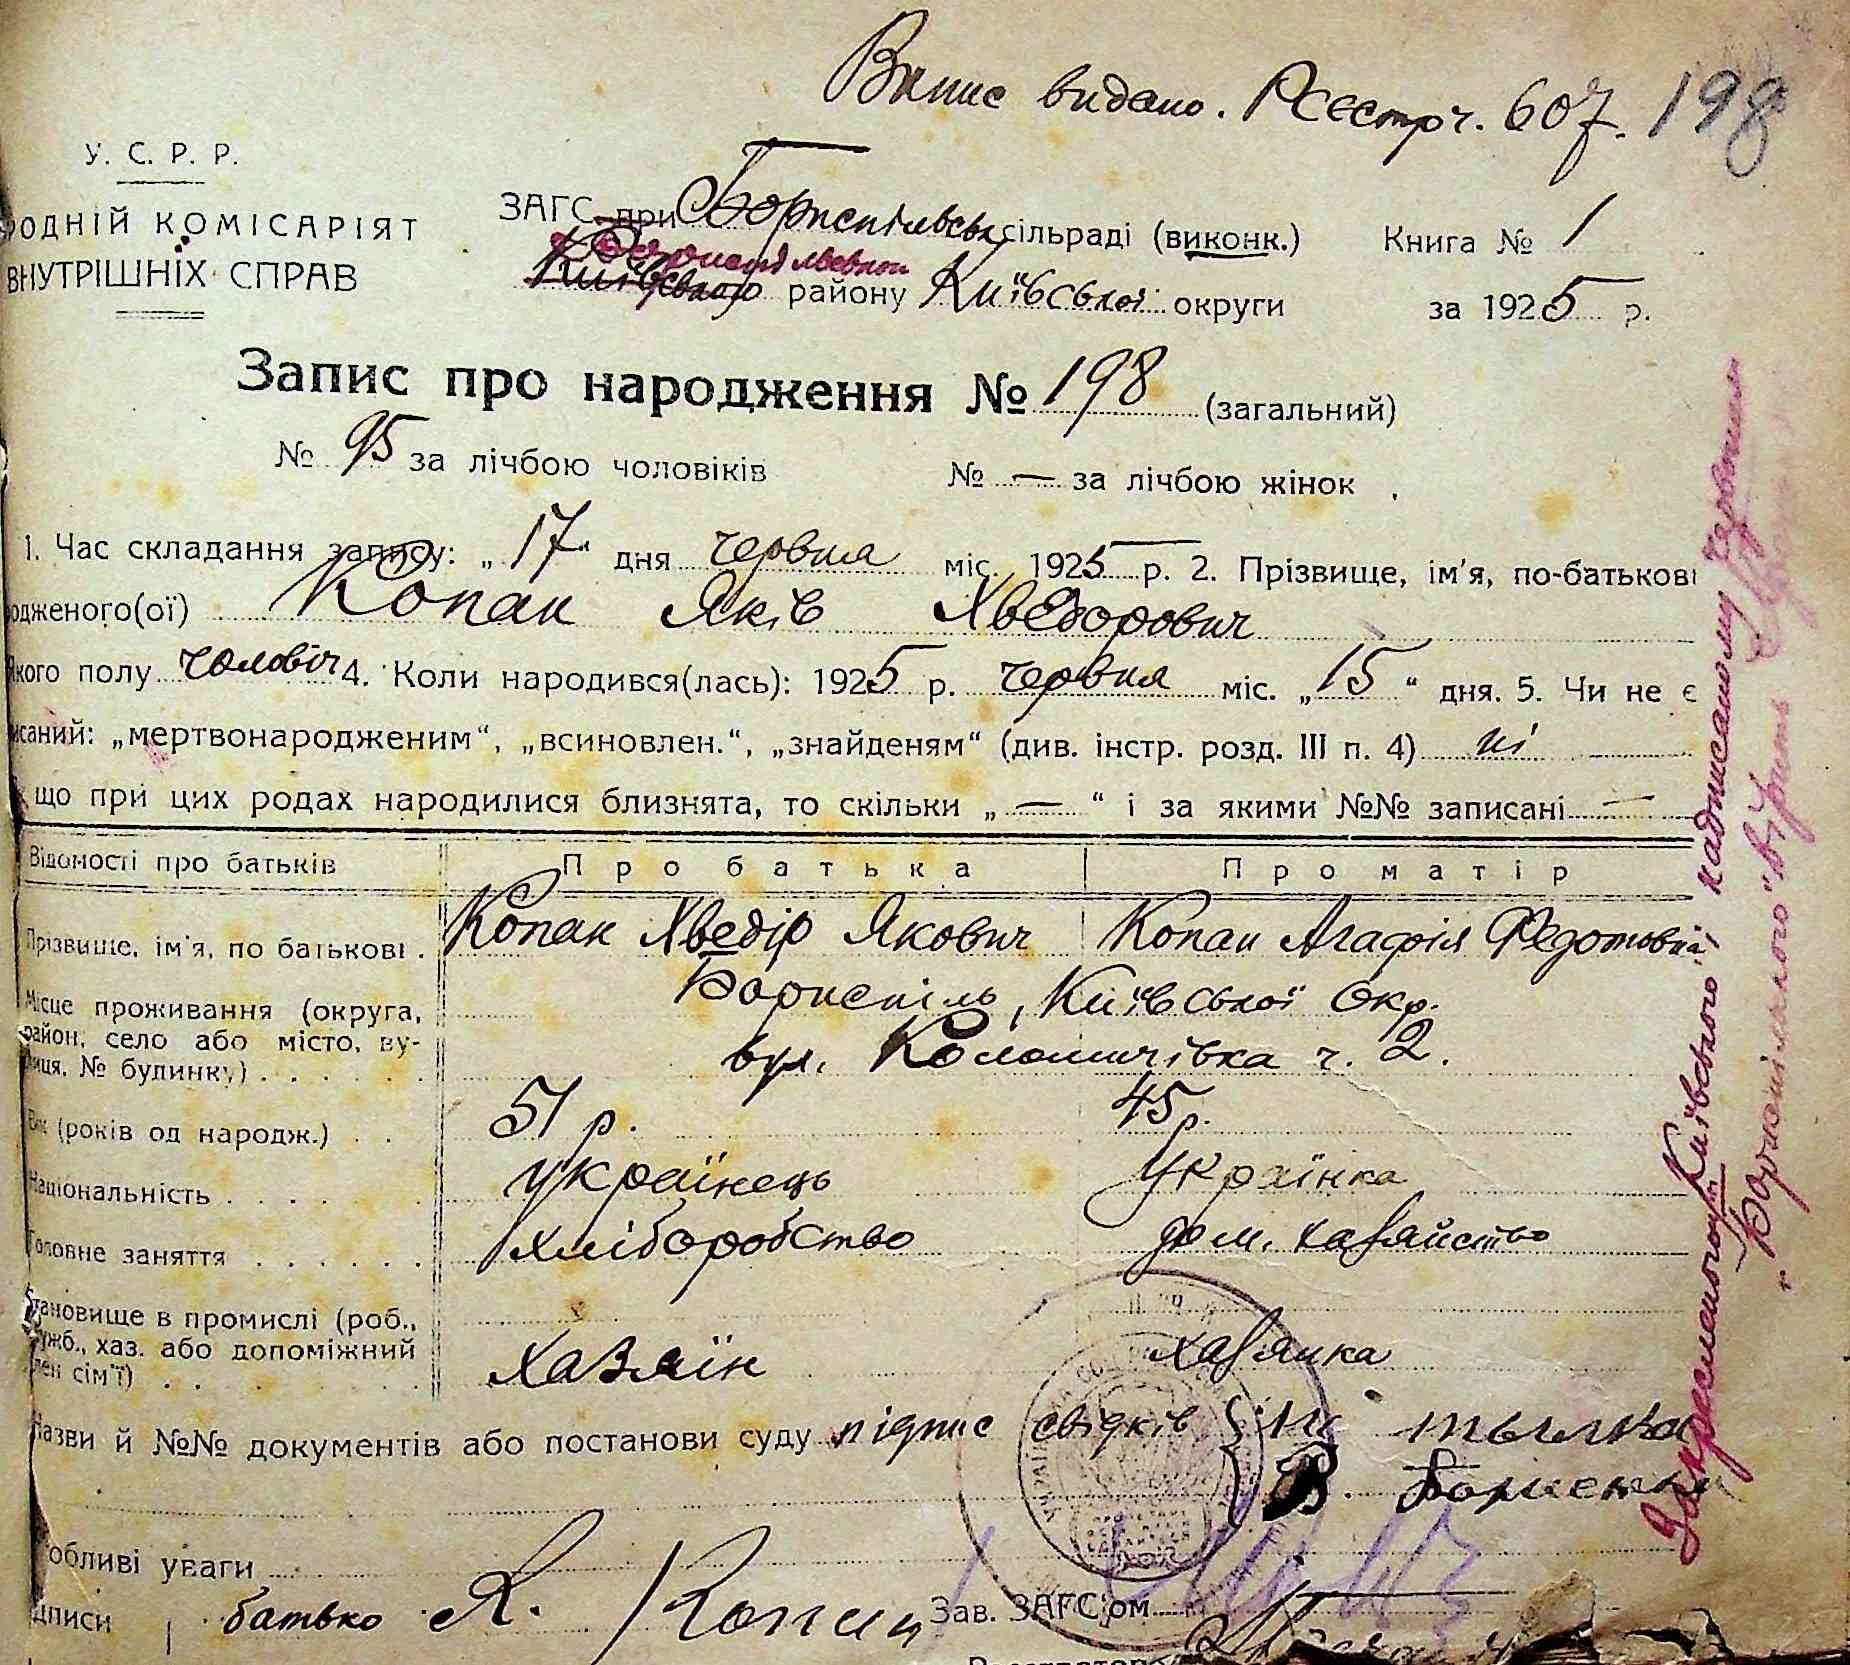 Випис видано. Реєстр ч. 607. 198
У. С. Р. Р.
РОДНІЙ КОМІСАРІЯТ
ВНУТРІШНІХ СПРАВ
ЗАГС при Бориспільськ. сільраді (виконк.) Книга № 1
Бориспільської
Київського району Київської округи за 1925 р.
Запис про народження № 198 (загальний)
№ 95 за лічбою чоловіків № — за лічбою жінок
1. Час складання запису: „17“ дня червня міс. 1925 р. 2. Прізвище, ім'я, по-батькові
одженого(ої) Копан Яків Хведорович
якого полу чоловіч 4. Коли народився(лась): 1925 р. червня міс. „15“ дня. 5. Чи не є
исаний: „мертвонародженим“, „всиновлен.“, „знайденям“ (див. інстр. розд. III п. 4) ні
що при цих родах народилися близнята, то скільки „—“ і за якими №№ записані —
Відомості про батьків Про батька Про матір
Прізвище, ім'я, по батькові . Копан Хведір Якович Копан Агафія Федотовна
Місце проживання (округа, район, село або місто, вулиця, № будинку) . . . . . .
Бориспіль, Київської Окр.
вул. Коломичівка ч. 2.
Вік (років од народж.) . . 51 р. 45 р.
Національність . . . . . українець Українка
Головне заняття . . . . . . хліборобство дом. хазяйство
тановище в промислі (роб.,
ужб., хаз. або допоміжний
лен сім'ї) . . хазяїн хазяйка
Назви й №№ документів або постанови суду підпис свідків
В.
обливі уваги
дписи батько Х. Копан Зав. ЗАГС'ом
Закресленому „Київського“, надписаному червоним
„Бориспільського“ вірить